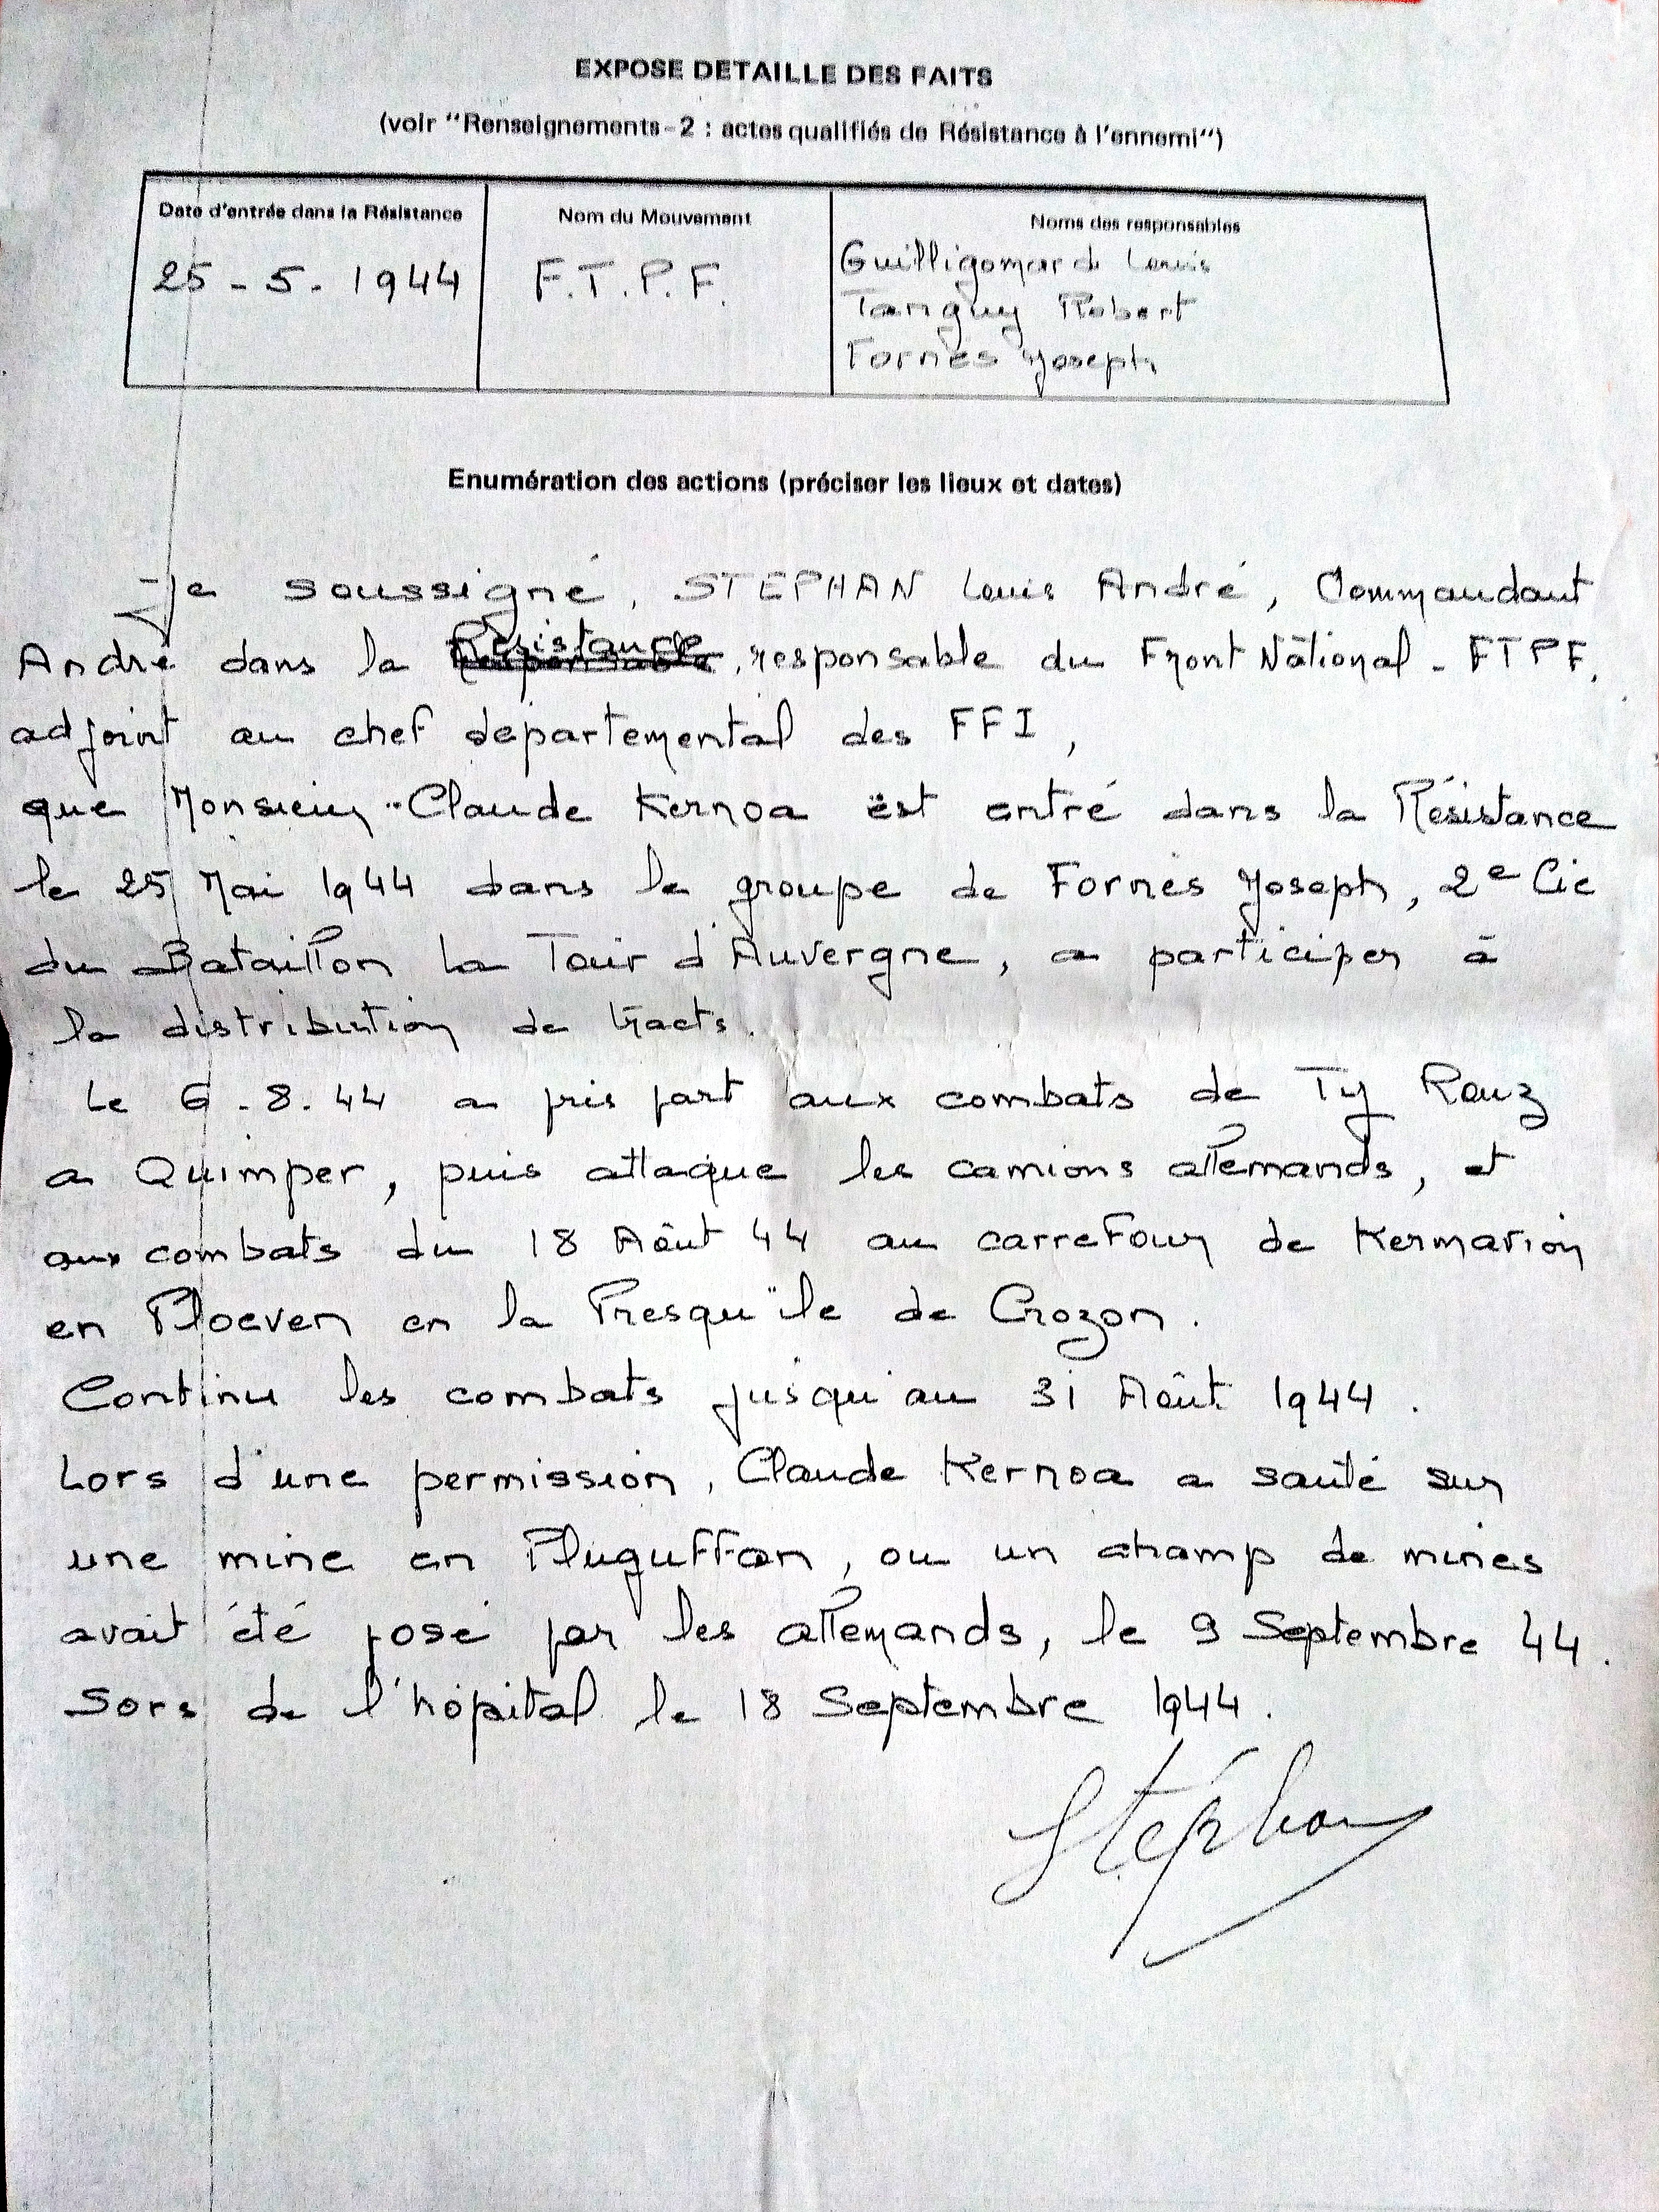 EXPOSE DETAILLE DES FAITS
(voir "Renseignements-2 : actes qualifiés de Résistance à l'ennemi")
Date d'entrée dans la Résistance
25-5-1944
Nom du Mouvement
F.T.P.F.
Noms des responsables
Guilligomarch Louis
Tanguy Robert
Fornès Joseph
Enumération des actions (préciser les lieux et dates)
Je soussigné, STEPHAN Louis André, Commandant
André dans la Résistance, responsable du Front National - FTPF,
adjoint au chef départemental des FFI,
que Monsieur Claude Kernoa est entré dans la Résistance
le 25 Mai 1944 dans le groupe de Fornès Joseph, 2e Cie
du Bataillon La Tour d'Auvergne, a participer à
la distribution de tracts.
Le 6.8.44 a pris part aux combats de Ty Rouz
a Quimper, puis attaque les camions allemands, et
aux combats du 18 Août 44 au carrefour de Kermarion
en Ploeven en la Presqu'ile de Crozon.
Continu les combats jusqu'au 31 Août 1944.
Lors d'une permission, Claude Kernoa a sauté sur
une mine en Pluguffan, ou un champ de mines
avait été posé par les allemands, le 9 Septembre 44.
Sors de l'hôpital le 18 Septembre 1944.
Stéphan